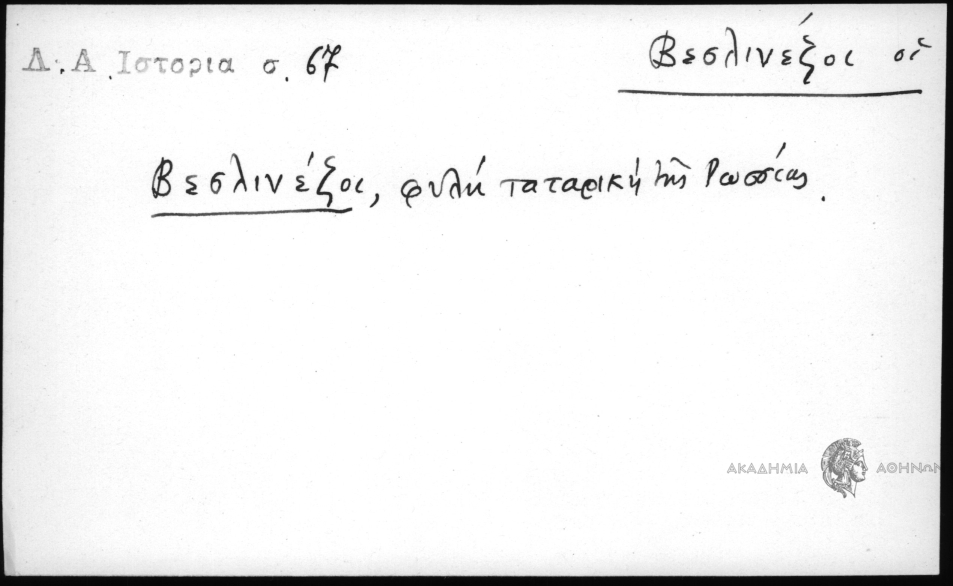 Δ. Α. Ιστορια σ. 67
Βεσλινέζοι οἱ
Βεσλινέζοι, φυλή ταταρική τῆς Ρωσσίας.
ΑΚΑΔΗΜΙΑ ΑΘΗΝΩΝ